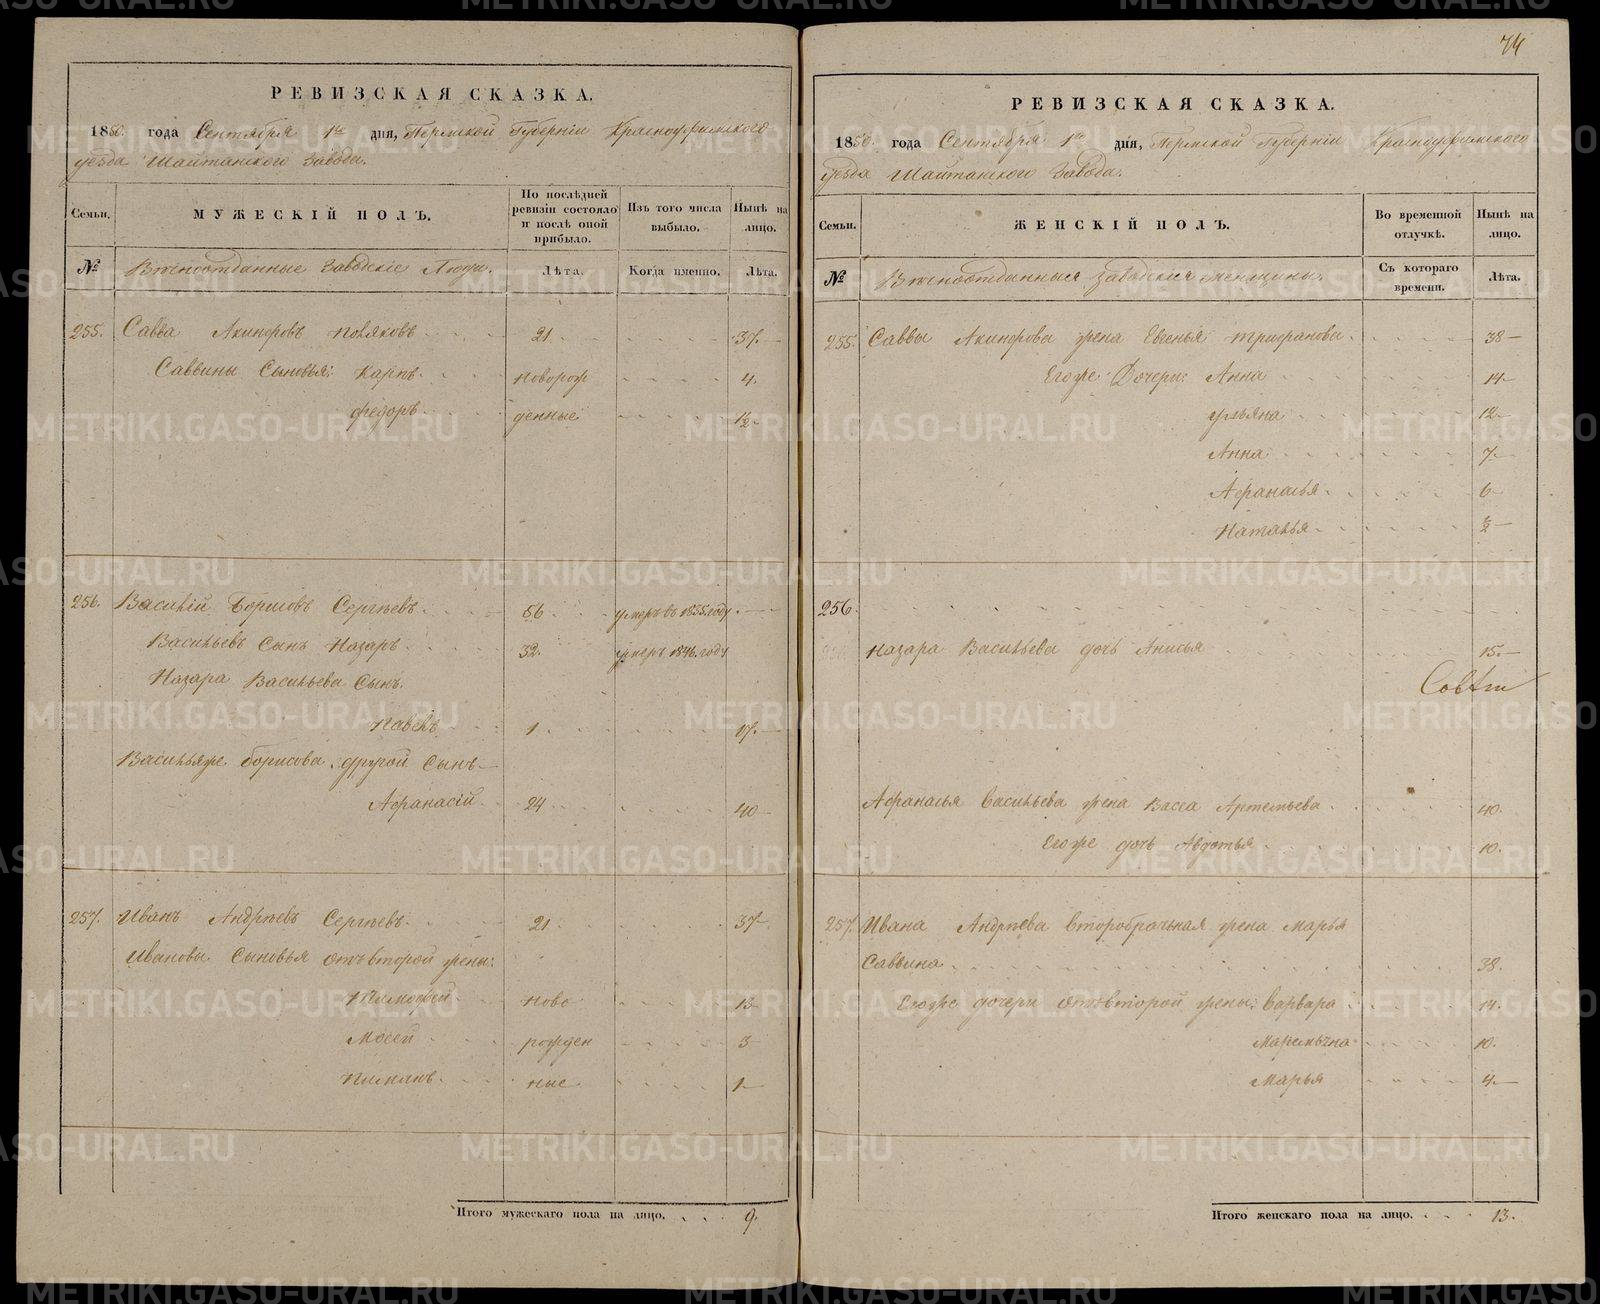 74
РЕВИЗСКАЯ СКАЗКА.
1850. года Сентября 1го дня, Пермской Губерніи Красноуфимского
уезда Шайтанского Завода.
Семьи.
МУЖЕСКІЙ ПОЛЪ.
По послѣдней ревизіи состояло и послѣ оной прибыло.
Изъ того числа выбыло.
Нынѣ на лицо.
№
Вѣчноотданные Заводскіе Люди.
Лѣта.
Когда именно.
Лѣта.
255. Савва Акинфовъ Поляковъ 21 37
Саввины Сыновья: Карпъ новорож 4.
Федоръ денные 1½
256. Василій Борисовъ Сергѣевъ 56 умеръ в 1835 году
Васильевъ Сынъ Назаръ 32. умеръ 1846. году
Назара Васильева Сынъ
Павелъ 1 17.
Васильяже борисова другой Сынъ
Афанасій 24 40
257. Иванъ Андрѣевъ Сергѣевъ 21 37
Ивановы Сыновья отъ второй жены:
Тимофей ново 13
Мосей рожден 3
Пименъ ные 1
Итого мужескаго пола на лицо. 9.
РЕВИЗСКАЯ СКАЗКА.
1850. года Сентября 1го дня, Пермской Губерніи Красноуфимского
уезда Шайтанского Завода.
Семьи.
ЖЕНСКІЙ ПОЛЪ.
Во временной отлучкѣ.
Нынѣ на лицо.
№
Вѣчноотданныя заводскія женщины.
Съ котораго времени.
Лѣта.
255. Саввы Акинфова жена Евгенья трифанова 38
Егоже Дочери: Анна 14
ульяна 12
Анна 7
Афанасья 6
Наталья ½
256.
Назара Васильева дочь Анисья 15.
Афанасья Васильева жена Васса Артемьева 40.
Егоже дочь Авдотья 10.
257. Ивана Андрѣева второбрачная жена Марья
Саввина 38.
Егоже дочери отъ второй жены: Варвара 14.
10.
Марья 4
Итого женскаго пола на лицо. 13.
METRIKI.GASO-URAL.RU